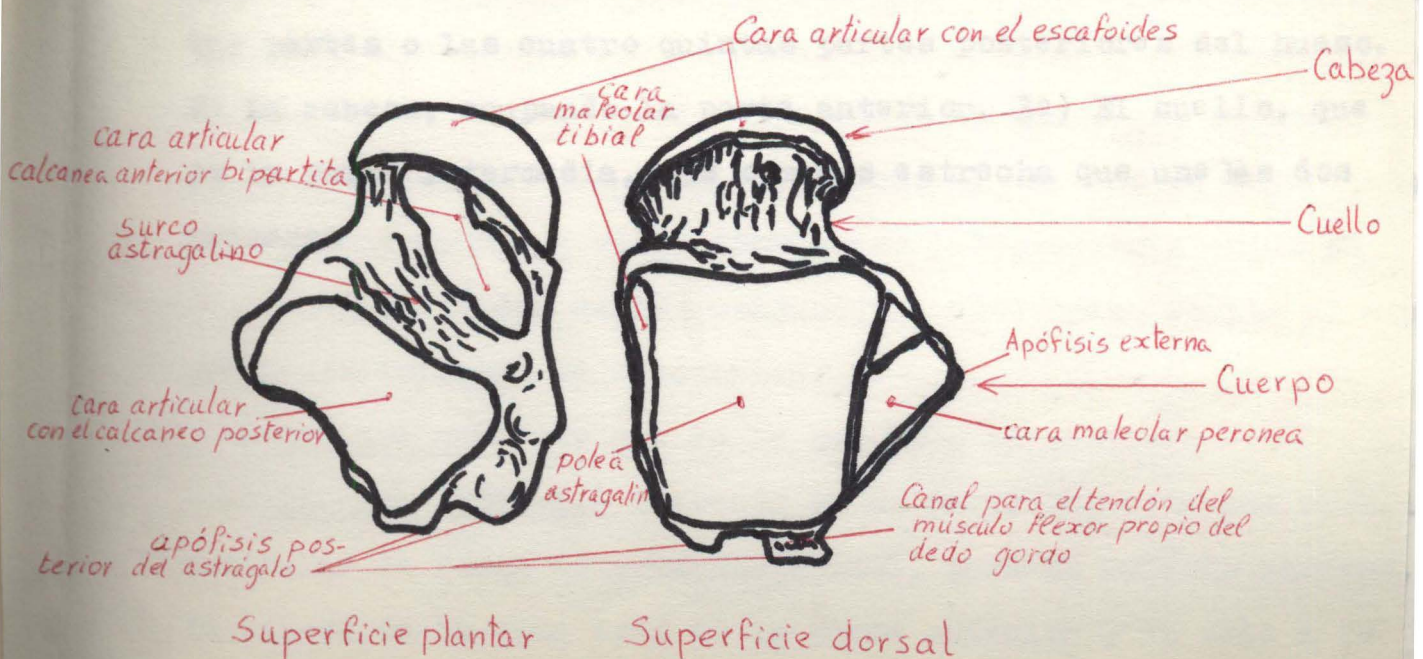 Cara articular con el escafoides
Cabeza
cara
maleolar
tibial
cara articular
calcanea anterior bipartita
surco
astragalino
Cuello
Apófisis externa
Cuerpo
cara articular
con el calcaneo posterior
cara maleolar peronea
polea
astragalin
Canal para el tendón del
músculo flexor propio del
dedo gordo
apófisis pos-
terior del astrágalo
Superficie plantar
Superficie dorsal